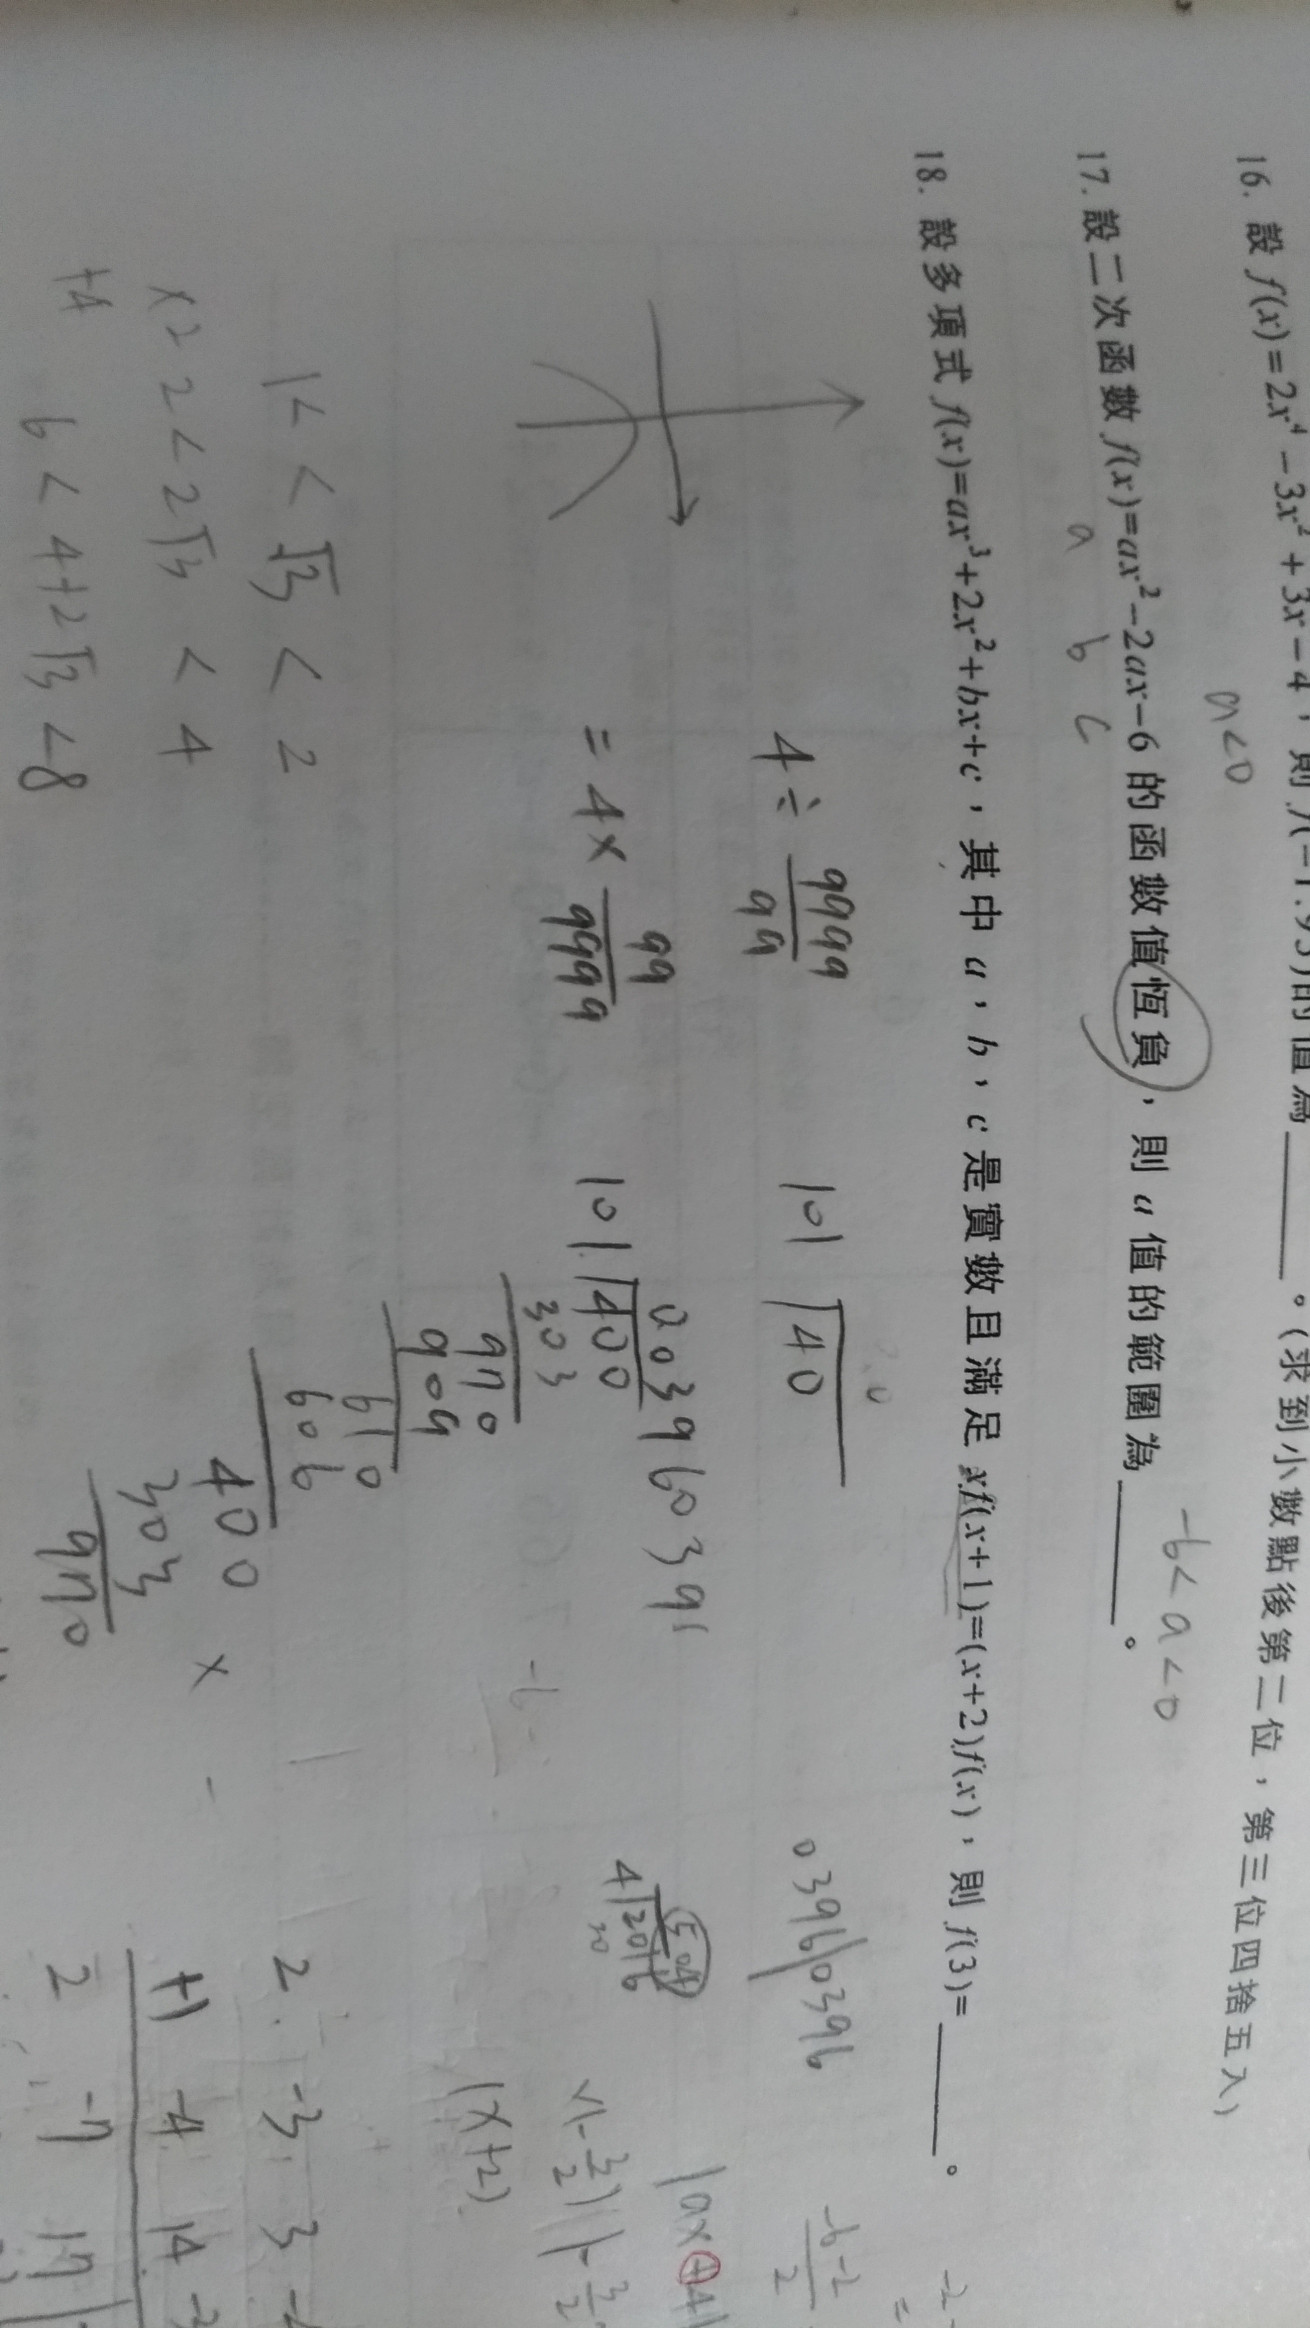 16. 設 f(x)=2x⁴-3x²+3x-4，則 f(-1.95)的值為______。(求到小數點後第二位，第三位四捨五入)
a<0
-6<a<0
17. 設二次函數 f(x)=ax²-2ax-6 的函數值恆負，則 a 值的範圍為______。
a b c
18. 設多項式 f(x)=ax³+2x²+bx+c，其中 a，b，c 是實數且滿足 xf(x+1)=(x+2)f(x)，則 f(3)=______。
4÷9999/99
=4×99/9999
101
40
03960396
101
400
303
970
909
610
606
400
303
970
5.04
4
2016
20
(x+2)
1<√3<2
×2 2<2√3<4
+4 6<4+2√3<8
2 -3 3
+1 -4 14
2 -7 17